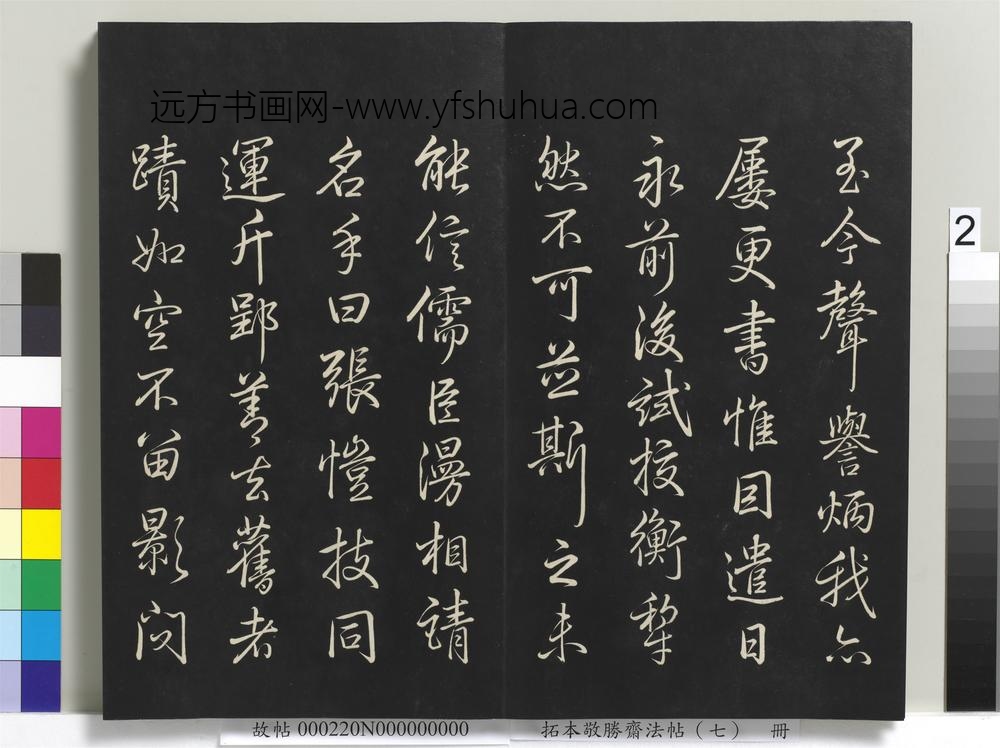 远方书画网-www.yfshuhua.com
至今聲譽炳我亦
屢更書惟目遣日
永前後試挍衡犂
然不可並斯之未
能信儒臣漫相請
名手曰張愷技同
運斤郢善去舊者
蹟如空不留影問
2
故帖 000220N000000000
拓本敬勝齋法帖（七） 冊